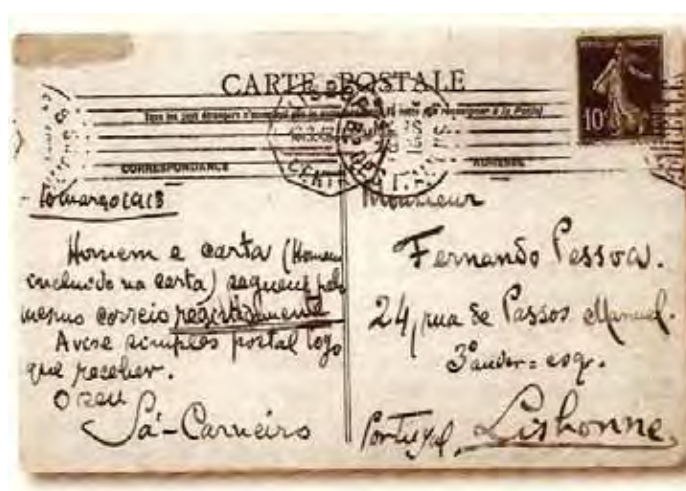 CARTE POSTALE
Tous les pays étrangers n'acceptent pas la
CORRESPONDANCE
ADRESSE
10 março 1913
Homem e carta (Homem
incluido na carta) seguem pelo
mesmo correio registadamente
Avise simples postal logo
que receber.
O seu
Sá-Carneiro
Monsieur
Fernando Pessoa.
24, rua de Passos Manuel.
3º andar = esq.
Portugal, Lisbonne,
10